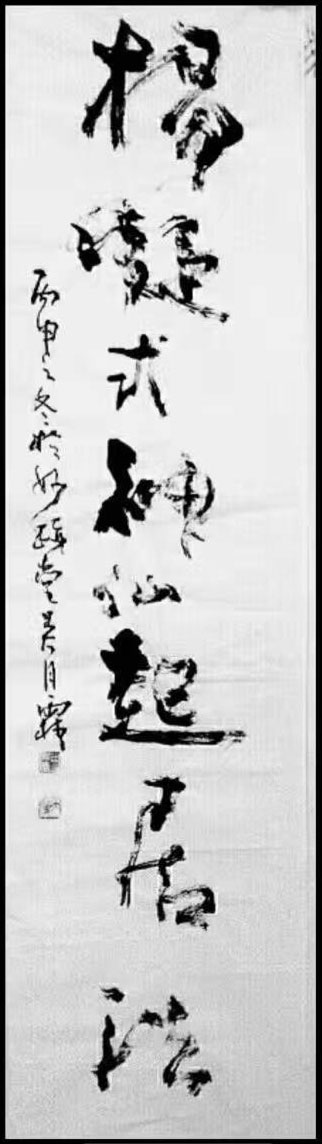 楊凝式神仙起居法
丙申之冬於妙蹟堂吳月霖